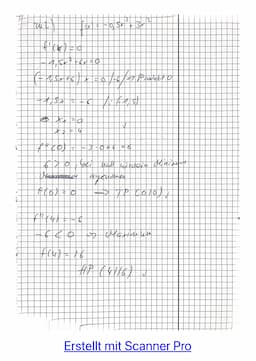 f(x) = -0,5x³+3x²
f'(x)=0
-1,5x²+6x=0
(-1,5x+6) x = 0
-1,5x = -6 /:(-1,5)
x₁ = 0
x₂ = 4
f''(0) = -3·0+6 = 6
6 > 0, bei null ein Minimum
f(0) = 0 → TP (0|0)
f''(4) = -6
-6 < 0 → Maximum
f(4) = 16
HP (4|16)
Erstellt mit Scanner Pro